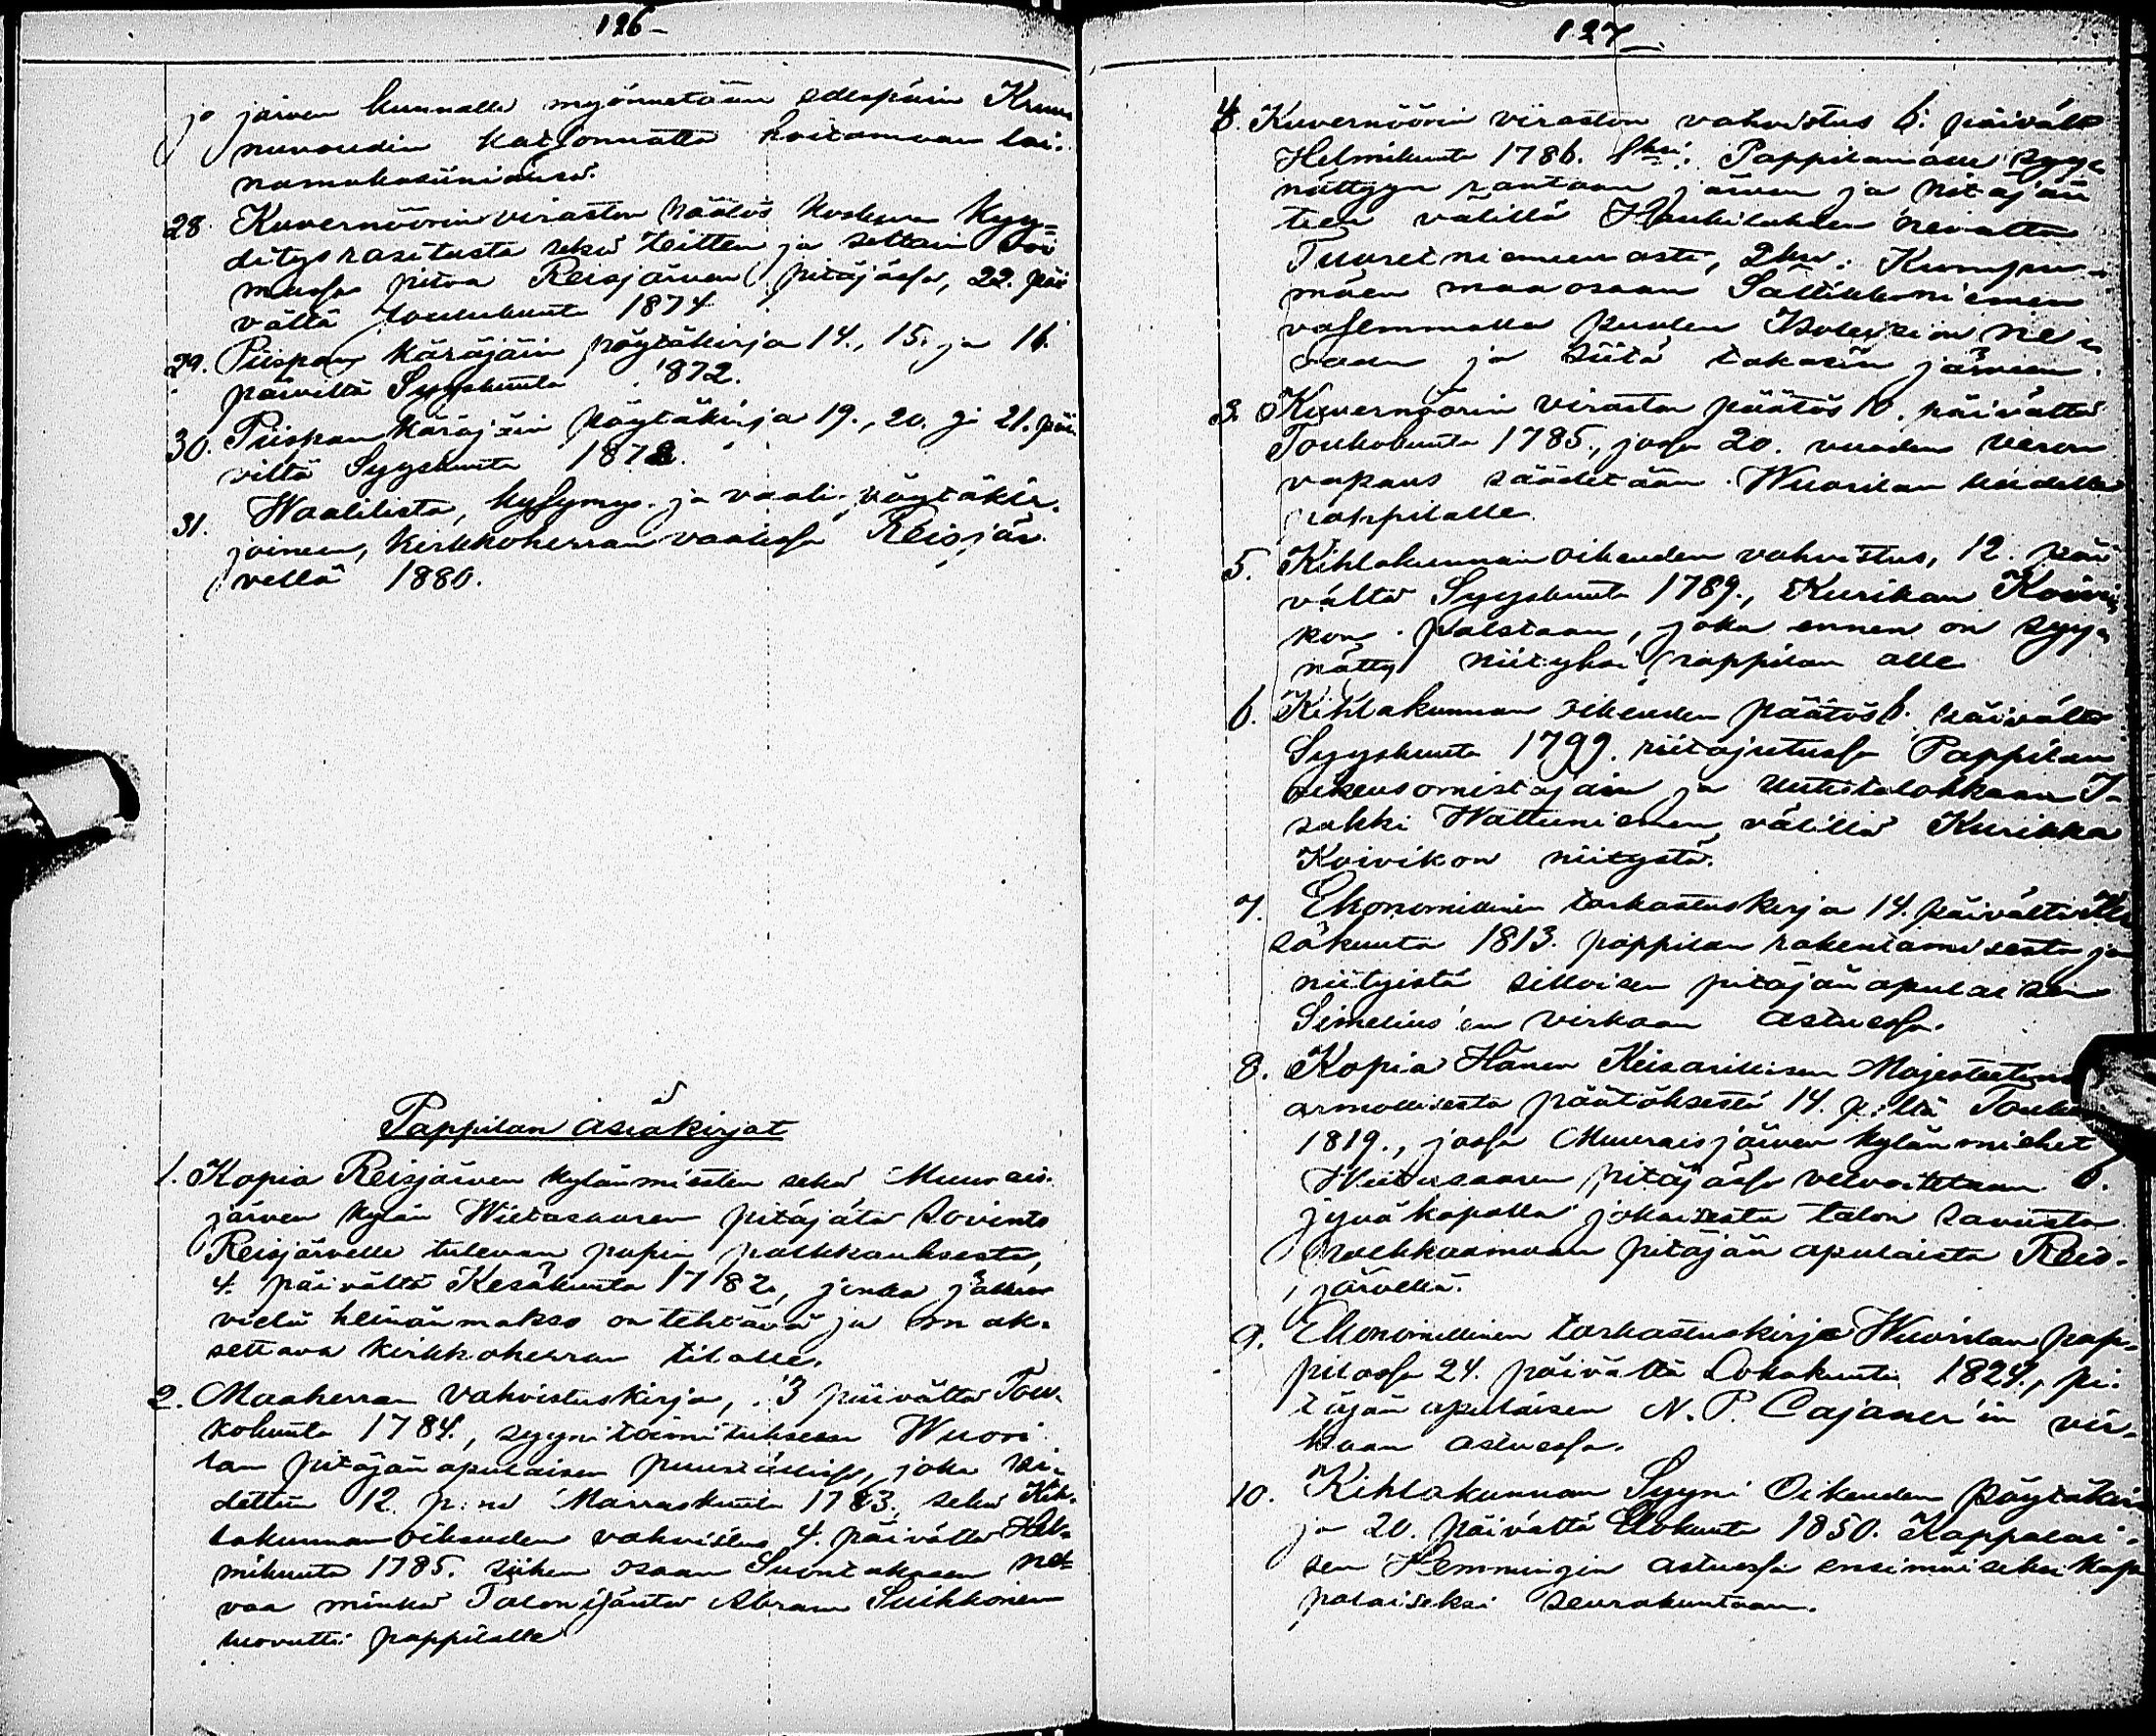 126
järven kunnalle myönnetään edespäin Kruu
nuvoudin katsonnatta hoitamaan lai-
namakasiiniansa.
28. Kuvernöörinviraston päätös koskeva kyy=
ditysrasitusta sekä teitten ja siltain voi
massa pitoa Reisjärven pitäjässä, 22. päi
vältä Joulukuuta 1874
29. Piispan käräjäin pöytäkirja 14., 15. ja 16.
päiviltä Syyskuuta 1872.
30. Piispan käräjäin pöytäkirja 19., 20. ja 21. päi
viltä Syyskuuta 1878.
31. Waalilista, kysymys- ja vaali-pöytäkir-
joineen, kirkkoherran vaalissa Reisjär-
vellä 1880.
Pappilan asiakirjat
1. Kopia Reisjärven kylänmiesten sekä Muurais-
järven kylän Wiitasaaren pitäjätä sovinto
Reisjärvelle tulevan papin palkkauksesta,
4. päivältä Kesäkuuta 1782, jonka jälkeen
vielä heinänmakso on tehtävä ja mak-
settava kirkkoherran tilalle.
2. Maaherran vahvistuskirja, 3 päivältä Tou-
kokuuta 1784., syynitoimitukseen Wuori
lan pitäjän apulaisen puustellissa, joka
dettiin 12. p:nä Marraskuuta 1783, sekä Kih-
lakunnanoikeuden vahvistus 4. päivältä Hel-
mikuuta 1785. siihen osaan Suontakasen ne-
vaa minkä Talonisäntä Abram Suikkonen
luovutti pappilalle
127
Kuvernöörin viraston vahvistus 6. päivält
Helmikuuta 1786. Pappilan alle syy-
nättyyn rantaan järven ja pitäjän
tien välillä Haukilahden nevalta
niemeen asti, 2ksi:
mäen maa osaan Sällikkoniemen
vasemmalla puolen ne-
vaan ja siitä takasin järveen.
3. Kuvernöörin viraston päätös 10. päivältä
Toukokuuta 1785., jossa 20. vuoden veron
vapaus säädetään Wuorilan uudelle
pappilalle.
5. Kihlakunnan oikeuden vahvistus, 12. päi
vältä Syyskuuta 1789., Kurikan Koivi-
kon palstaan, joka ennen on syy-
nätty niityksi pappilan alle
6. Kihlakunnan oikeuden päätös 6. päivältä
Syyskuuta 1799. riitajutussa Pappilan
oikeusomistajain ja Uutistalokkaan I-
sakki Wattuniemen välillä Kurikka
Koivikon niitystä.
7. Ekonomillinen tarkastuskirja 14. päivältä Ke
säkuuta 1813. pappilan rakentamisesta ja
niityistä silloisen pitäjänapulaisen
Simelius'en virkaan astuessa.
8. Kopia Hänen Keisarillisen Majesteetinsa
armollisesta päätöksestä 14. p:ltä Touko
1819., jossa Muuraisjärven kylänmiehet
Wiitasaaren pitäjässä velvoitetaan 6.
jyväkapalla jokaisesta talon savusta
palkkaamaan pitäjän apulaista Reis-
järvellä.
9. Ekonomillinen tarkastuskirja Wuorilan pap-
pilassa 24. päivältä Lokakuuta 1824., pi-
täjän apulaisen N. P. Cajaner'in vir-
kaan astuessa.
10. Kihlakunnan Syyni Oikeuden pöytäkir
ja 20. päivältä Elokuuta 1850. Kappalai-
sen Hemmingin astuessa ensimäiseksi kap
palaiseksi seurakuntaan.